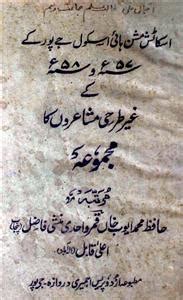 اسکاٹش مشن ہائی اسکول جے پور کے
۵۷ء و ۵۸ء
کے
غیر طرحی مشاعروں کا
مجموعہ
مرتبہ
حافظ محمد ایوب خاں قمر واحدی منشی فاضل
اعلیٰ قابل
مطبوعہ آزاد پریس اجمیری دروازہ۔ جے پور